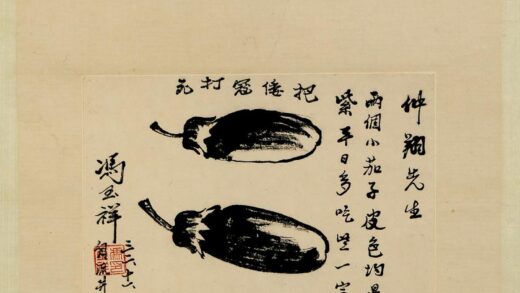 仲翔先生
兩個小茄子皮色均是
紫平日多吃些一定
把倭寇打死
馮玉祥
自流井